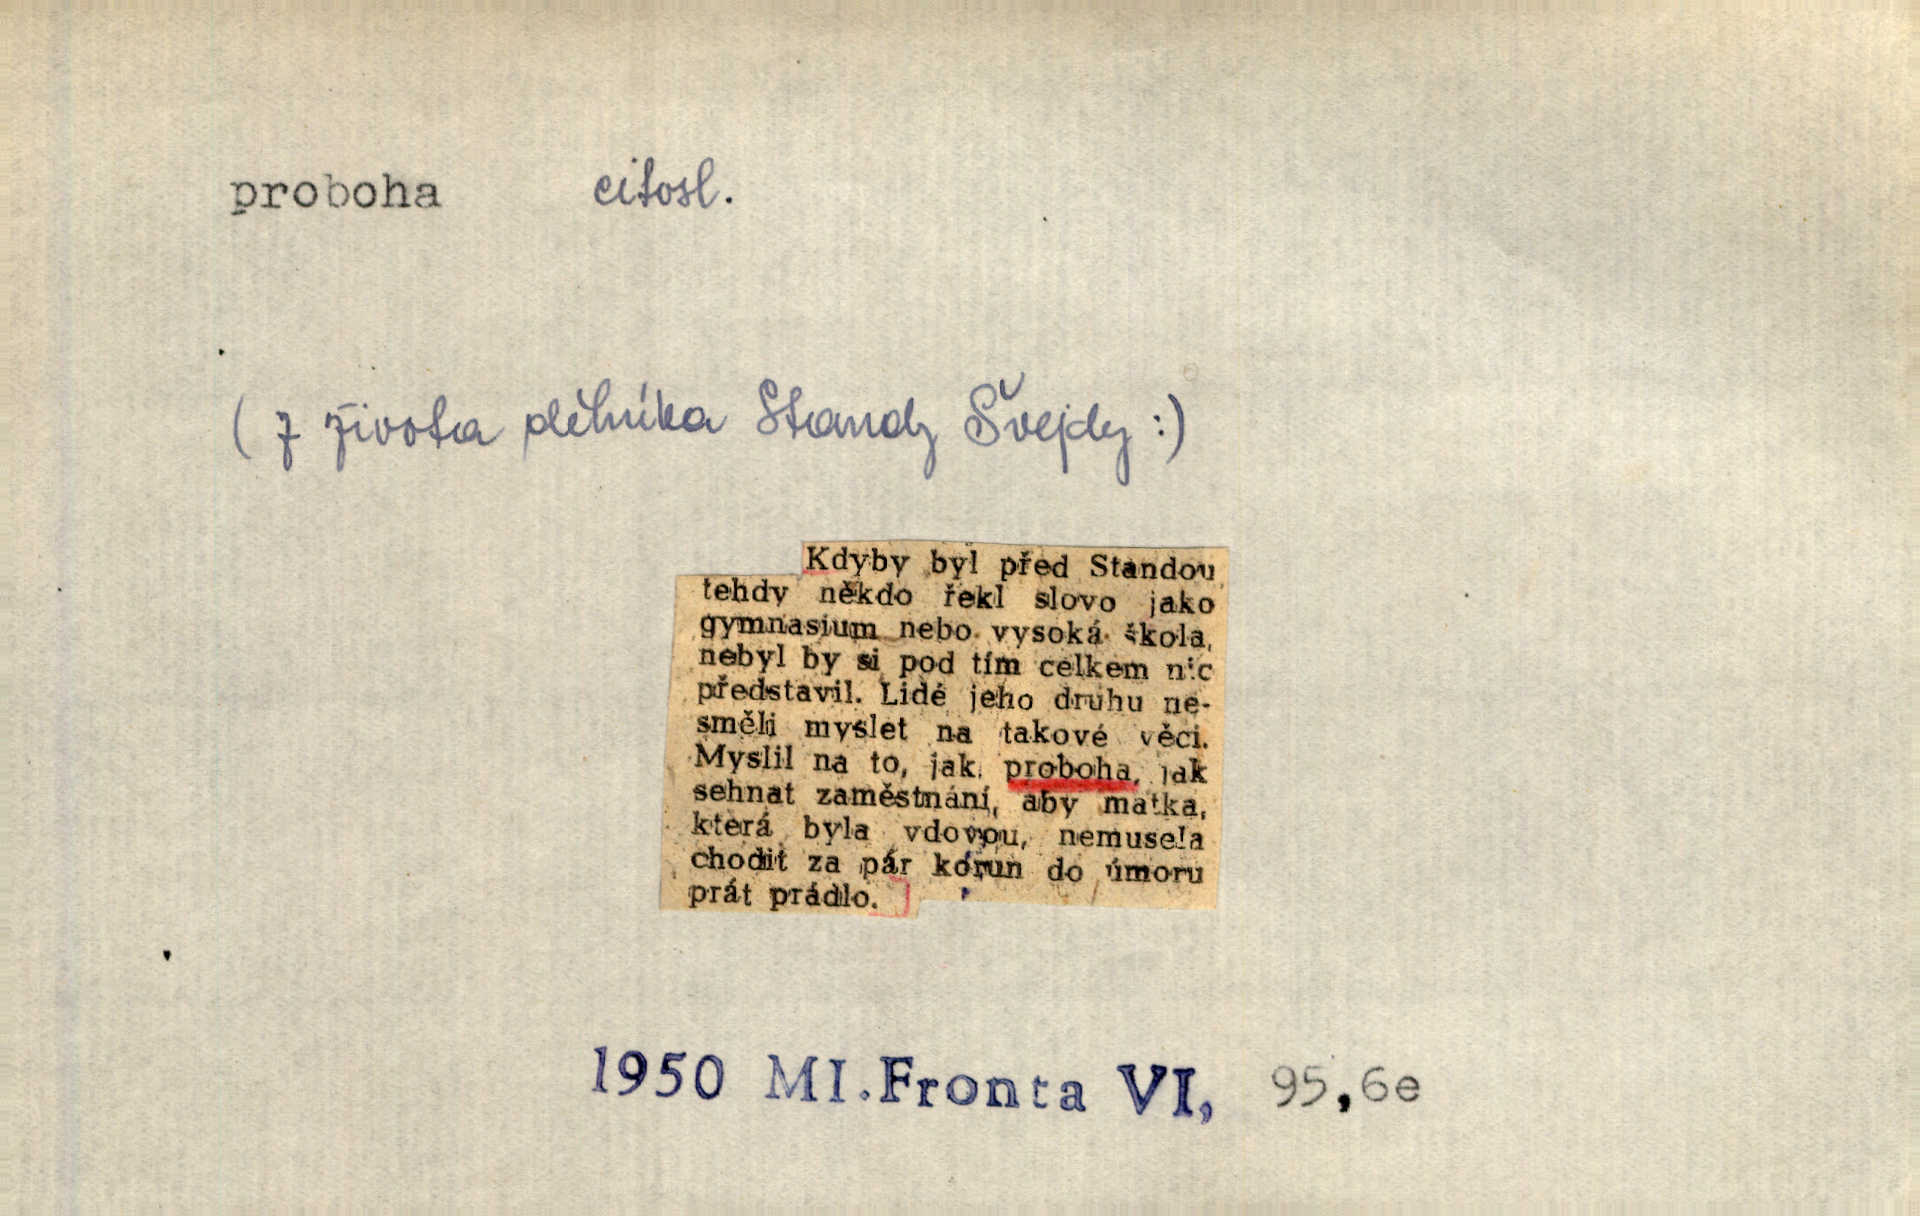 proboha citosl.
( z života dělníka Standy Švejdy :)
Kdyby byl před Standou
tehdy někdo řekl slovo jako
gymnasium nebo vysoká škola,
nebyl by si pod tím celkem nic
představil. Lidé jeho druhu ne-
směli myslet na takové věci.
Myslil na to, jak, proboha, jak
sehnat zaměstnání, aby matka,
která byla vdovou, nemusela
chodit za pár korun do úmoru
prát prádlo.]
1950 Ml.Fronta VI, 95,6e